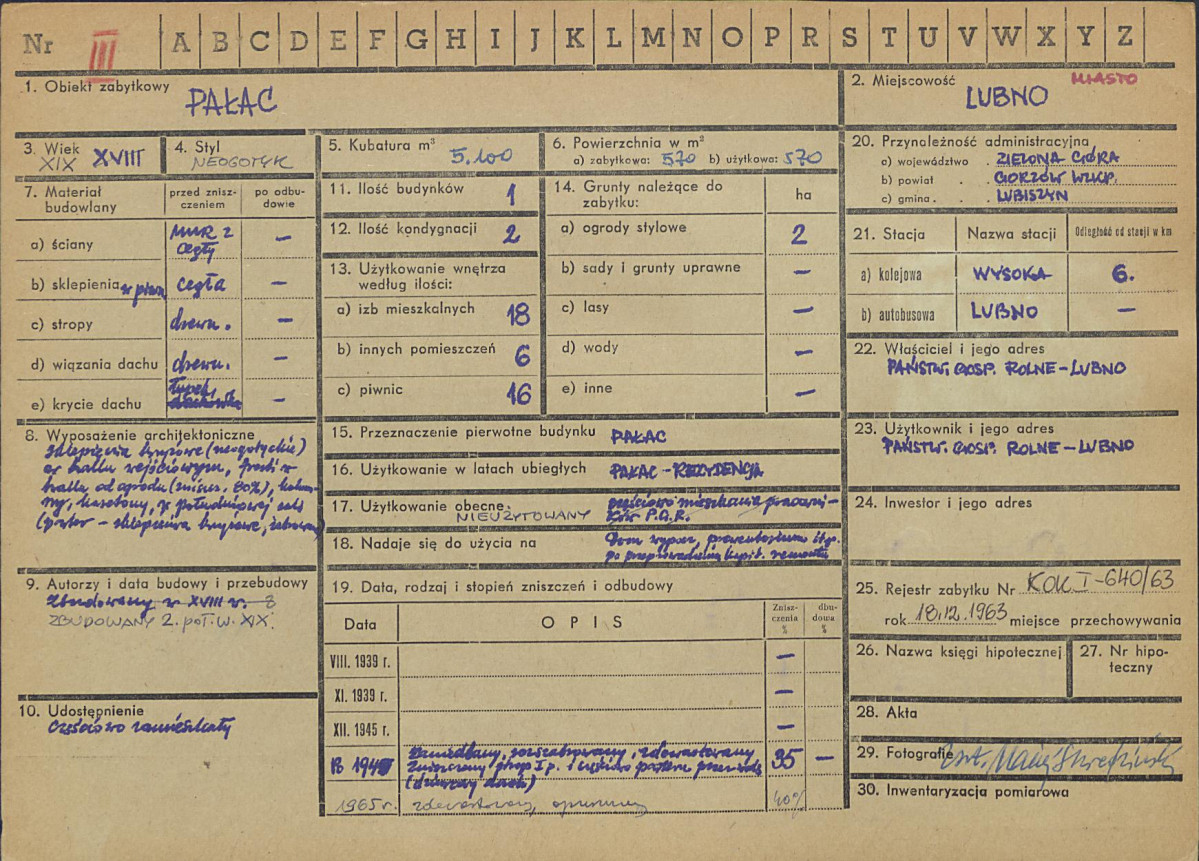 Nr III A B C D E F G H I J K L M N O P R S T U V W X Y Z
1. Obiekt zabytkowy PAŁAC
2. Miejscowość MIASTO
LUBNO
3. Wiek XVIII
XIX
4. Styl
NEOGOTYK
5. Kubatura m³
5.100
6. Powierzchnia w m²
a) zabytkowa: 570 b) użytkowa: 570
20. Przynależność administracyjna
a) województwo . ZIELONA GÓRA
b) powiat . . GORZÓW WLKP.
c) gmina . . LUBISZYN
7. Materiał budowlany
przed zniszczeniem
po odbudowie
a) ściany MUR z cegły –
b) sklepienia w piwn cegła –
c) stropy drewn. –
d) wiązania dachu drewn. –
e) krycie dachu łupek, dachówka –
11. Ilość budynków 1
12. Ilość kondygnacji 2
13. Użytkowanie wnętrza
według ilości:
a) izb mieszkalnych 18
b) innych pomieszczeń 6
c) piwnic 16
14. Grunty należące do
zabytku: ha
a) ogrody stylowe 2
b) sady i grunty uprawne –
c) lasy –
d) wody –
e) inne –
21. Stacja Nazwa stacji Odległość od stacji w km
a) kolejowa WYSOKA 6.
b) autobusowa LUBNO –
22. Właściciel i jego adres
PAŃSTW. GOSP. ROLNE – LUBNO
8. Wyposażenie architektoniczne
sklepienia krzyżowe (neogotyckie)
w hallu wejściowym,
hallu od ogrodu (zniszcz. 80%),
kasetony, w południowej
sklepienia krzyżowe,
15. Przeznaczenie pierwotne budynku PAŁAC
16. Użytkowanie w latach ubiegłych PAŁAC – REZYDENCJA
17. Użytkowanie obecne: częściowo mieszkania pracowni-
NIEUŻYTOWANY ków P.G.R.
18. Nadaje się do użycia na Dom wypocz., prewentorium itp.
po przeprowadzeniu kapit. remontu
23. Użytkownik i jego adres
PAŃSTW. GOSP. ROLNE – LUBNO
24. Inwestor i jego adres
9. Autorzy i data budowy i przebudowy
Zbudowany w XVIII w.
ZBUDOWANY 2. POŁ. W. XIX.
10. Udostępnienie
częściowo zamieszkały
19. Data, rodzaj i stopień zniszczeń i odbudowy
Data OPIS Zniszczenia % dbudowa %
VIII. 1939 r. –
XI. 1939 r. –
XII. 1945 r. –
zaniedbany, rozszabrowany, zdewastowany
zniszczony strop I p. i częściowo parteru
(dziurawy dach) 35 –
1965 r. zdewastowany, opuszczony 40%
25. Rejestr zabytku Nr KOK I-640/63
rok 18.12.1963 miejsce przechowywania
26. Nazwa księgi hipotecznej
27. Nr hipoteczny
28. Akta
29. Fotografie
30. Inwentaryzacja pomiarowa